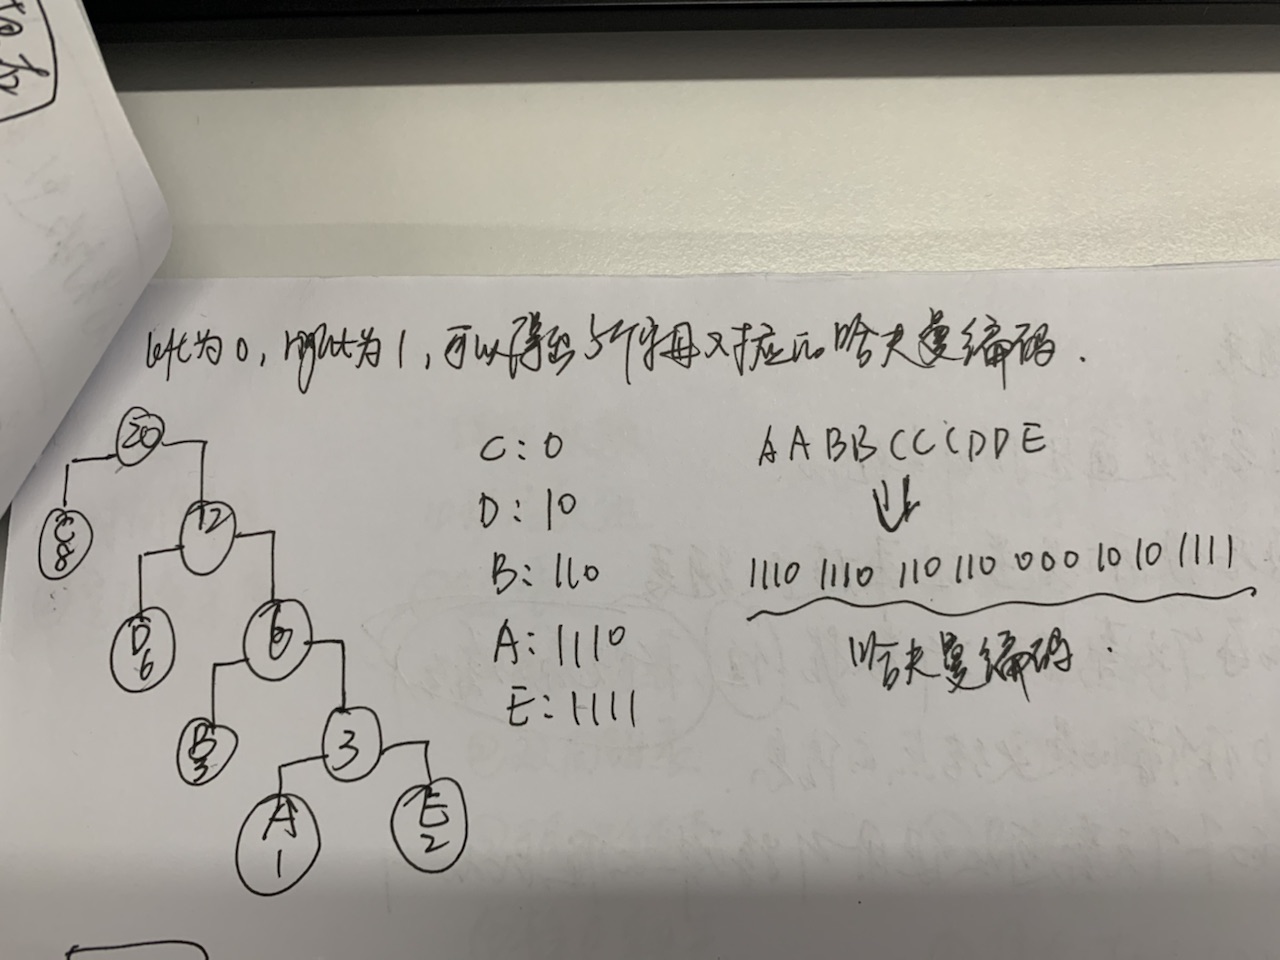 left为0, right为1, 可以得出5个字母对应的哈夫曼编码.
20
C
8
12
D
6
6
B
3
3
A
1
E
2
C: 0
D: 10
B: 110
A: 1110
E: 1111
AABBCCCDDE
1110 1110 110 110 000 10 10 1111
哈夫曼编码.